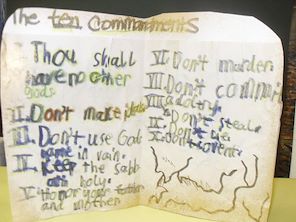 The ten Commandments
I. Thou shall
have no other
gods
II. Don't make idols
III. Don't use God
name in vain.
IV. Keep the sabb
ath holy
V. Honor your father
and mother
VI. Don't murder
VII. Don't commit
adoltry
Don't steal
Don't lie
Don't covent